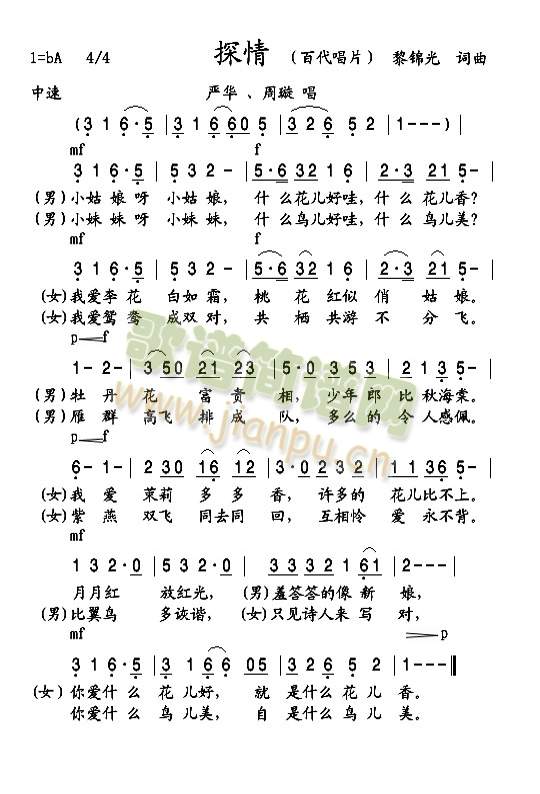 1=bA 4/4 探情 (百代唱片) 黎锦光 词曲
中速 严华、周璇 唱
(3 1 6·5 | 3 1 6 60 5 | 3 2 6 5 2 | 1 - - -) |
mf f
3 1 6·5 | 5 3 2 - | 5·6 32 1 6 | 2·3 21 5 - |
(男)小姑 娘呀 小姑 娘, 什么花儿好哇,什么 花儿香?
(男)小妹 妹呀 小妹 妹, 什么鸟儿好哇,什么 鸟儿美?
mf f
3 1 6·5 | 5 3 2 - | 5·56 32 1 6 | 2·3 21 5 - |
(女)我爱李花 白如霜, 桃 花 红似 俏 姑 娘。
(女)我爱鸳鸯 成双对, 共 栖 共游 不 分 飞。
p f
1 - 2 - | 3 50 21 23 | 5·0 3 5 3 | 2 1 3 5 - |
(男)牡 丹 花 富 贵 相, 少年 郎 比 秋海棠。
(男)雁 群 高飞 排 成 队, 多么 的 令 人感佩。
p f
6 - 1 - | 2 30 16 12 | 3·0 2 32 3 | 1 1 36 5 - |
(女)我 爱 茉莉 多 多 香, 许多的 花儿比不上。
(女)紫 燕 双飞 同去同 回, 互相怜 爱 永不背。
mf
1 3 2·0 | 5 3 2·0 | 3 3 3 2 1 61 | 2 - - - |
月月红 放红光, (男)羞答答的像 新 娘,
(男)比翼鸟 多诙谐, (女)只见诗人来 写 对,
mf p
3 1 6·5 | 3 1 6 6 05 | 5 3 5 2 | 1 - - - ‖
(女)你爱什 么 花 儿好, 就 是什么 花 儿 香。
你爱什 么 鸟 儿美, 自 是什么 鸟 儿 美。
歌谱简谱网
www.jianpu.cn